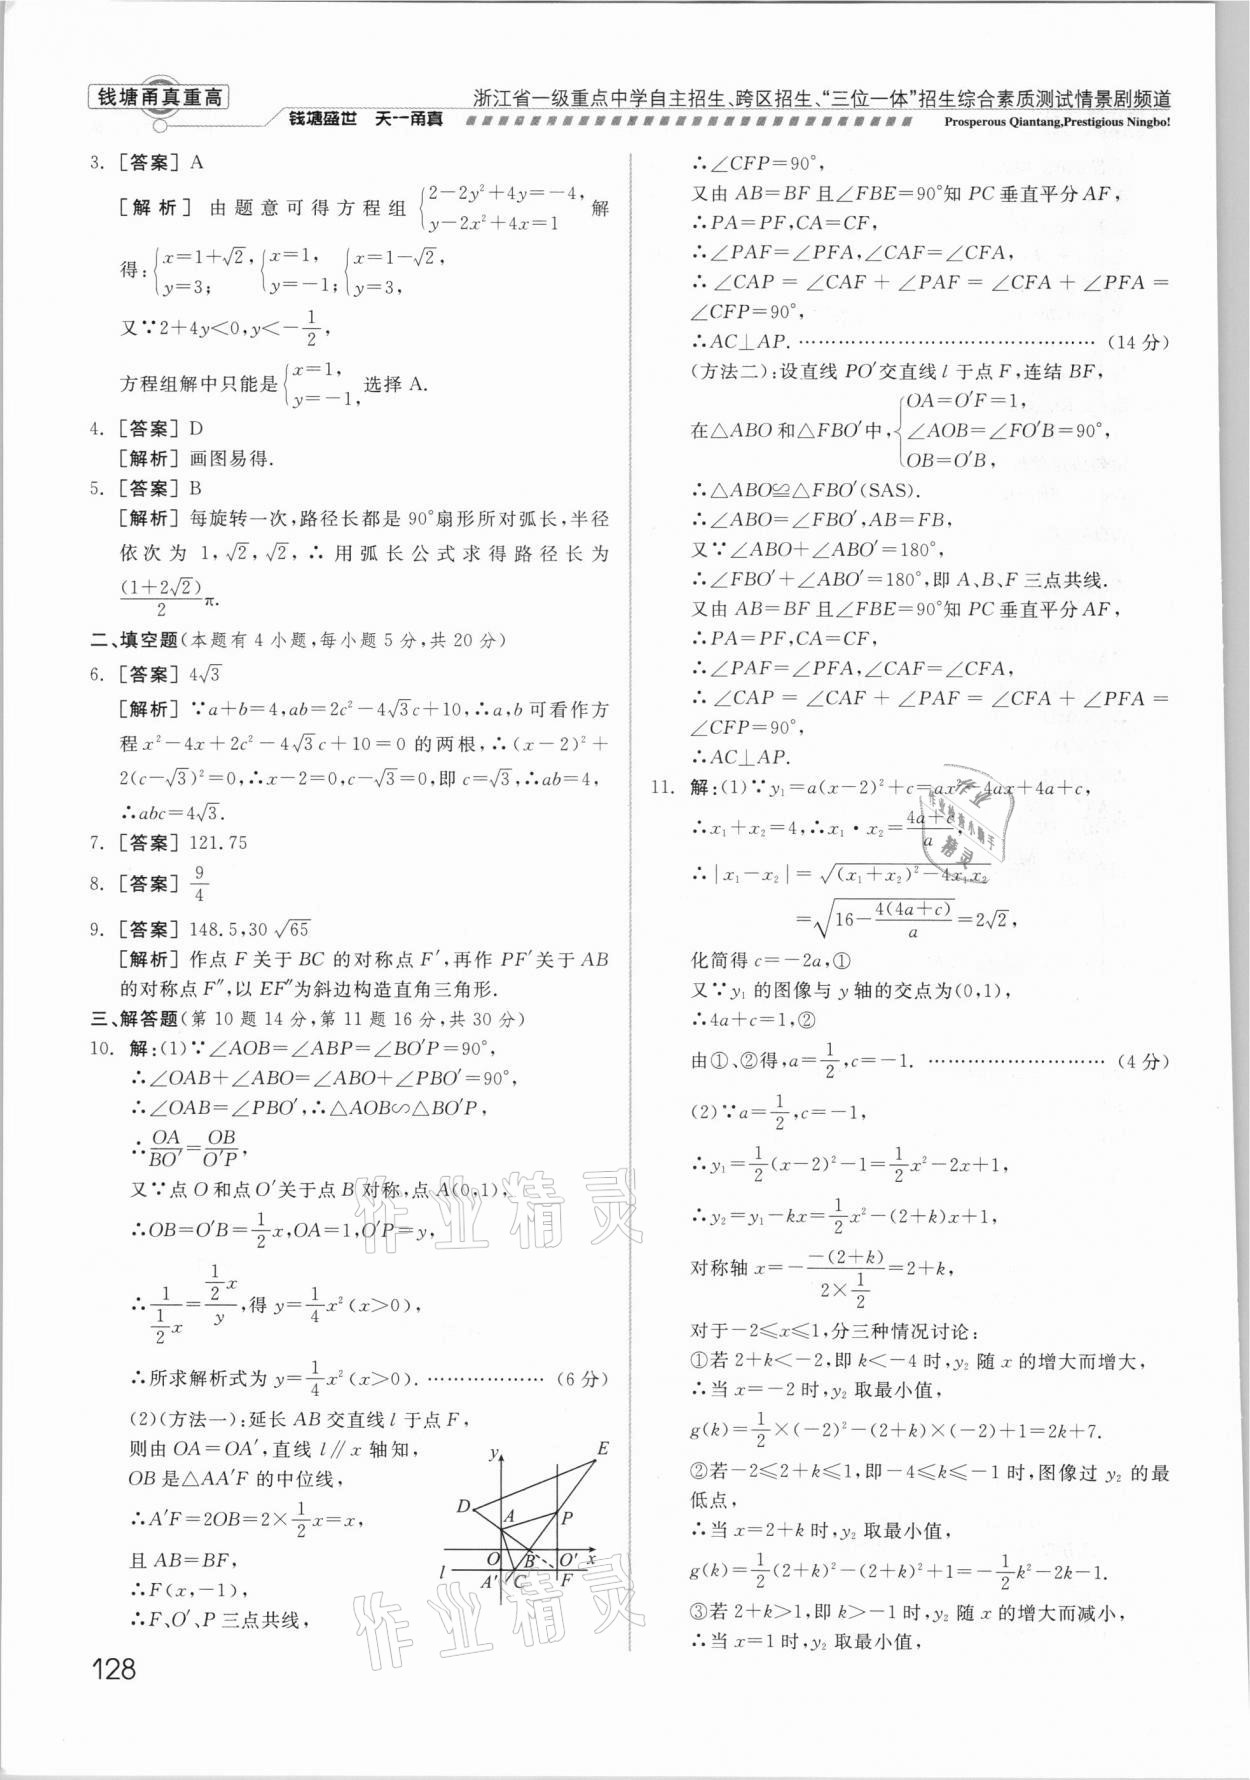 钱塘甬真重高
钱塘盛世 天一甬真
浙江省一级重点中学自主招生、跨区招生、“三位一体”招生综合素质测试情景剧频道
Prosperous Qiantang,Prestigious Ningbo!
3. [答案] A
[解析] 由题意可得方程组 {2−2y²+4y=−4, y−2x²+4x=1 解
得:{x=1+√2, y=3; {x=1, y=−1; {x=1−√2, y=3,
又∵2+4y<0,y<−1/2,
方程组解中只能是{x=1, y=−1, 选择 A.
4. [答案] D
[解析] 画图易得.
5. [答案] B
[解析] 每旋转一次,路径长都是 90°扇形所对弧长,半径
依次为 1,√2,√2,∴用弧长公式求得路径长为
(1+2√2)/2 π.
二、填空题(本题有 4 小题,每小题 5 分,共 20 分)
6. [答案] 4√3
[解析] ∵a+b=4,ab=2c²−4√3c+10,∴a,b 可看作方
程 x²−4x+2c²−4√3c+10=0 的两根,∴(x−2)²+
2(c−√3)²=0,∴x−2=0,c−√3=0,即 c=√3,∴ab=4,
∴abc=4√3.
7. [答案] 121.75
8. [答案] 9/4
9. [答案] 148.5,30√65
[解析] 作点 F 关于 BC 的对称点 F′,再作 PF′关于 AB
的对称点 F″,以 EF″为斜边构造直角三角形.
三、解答题(第 10 题 14 分,第 11 题 16 分,共 30 分)
10. 解:(1)∵∠AOB=∠ABP=∠BO′P=90°,
∴∠OAB+∠ABO=∠ABO+∠PBO′=90°,
∴∠OAB=∠PBO′,∴△AOB∽△BO′P,
∴OA/BO′=OB/O′P,
又∵点 O 和点 O′关于点 B 对称,点 A(0,1),
∴OB=O′B=1/2 x,OA=1,O′P=y,
∴1/(1/2 x)=(1/2 x)/y,得 y=1/4 x²(x>0),
∴所求解析式为 y=1/4 x²(x>0). ………………(6 分)
(2)(方法一):延长 AB 交直线 l 于点 F,
则由 OA=OA′,直线 l∥x 轴知,
OB 是△AA′F 的中位线,
∴A′F=2OB=2×1/2 x=x,
且 AB=BF,
∴F(x,−1),
∴F、O′、P 三点共线,
y
E
D
A
P
O
B
O′
x
l
A′
C
F
128
∴∠CFP=90°,
又由 AB=BF 且∠FBE=90°知 PC 垂直平分 AF,
∴PA=PF,CA=CF,
∴∠PAF=∠PFA,∠CAF=∠CFA,
∴∠CAP=∠CAF+∠PAF=∠CFA+∠PFA=
∠CFP=90°,
∴AC⊥AP. ………………………………(14 分)
(方法二):设直线 PO′交直线 l 于点 F,连结 BF,
在△ABO 和△FBO′中,{OA=O′F=1, ∠AOB=∠FO′B=90°, OB=O′B,
∴△ABO≌△FBO′(SAS).
∴∠ABO=∠FBO′,AB=FB,
又∵∠ABO+∠ABO′=180°,
∴∠FBO′+∠ABO′=180°,即 A、B、F 三点共线.
又由 AB=BF 且∠FBE=90°知 PC 垂直平分 AF,
∴PA=PF,CA=CF,
∴∠PAF=∠PFA,∠CAF=∠CFA,
∴∠CAP=∠CAF+∠PAF=∠CFA+∠PFA=
∠CFP=90°,
∴AC⊥AP.
11. 解:(1)∵y₁=a(x−2)²+c=ax²−4ax+4a+c,
∴x₁+x₂=4,∴x₁·x₂=(4a+c)/a,
∴|x₁−x₂|=√((x₁+x₂)²−4x₁x₂)
=√(16−4(4a+c)/a)=2√2,
化简得 c=−2a,①
又∵y₁ 的图像与 y 轴的交点为(0,1),
∴4a+c=1,②
由①、②得,a=1/2,c=−1. ………………………(4 分)
(2)∵a=1/2,c=−1,
∴y₁=1/2(x−2)²−1=1/2 x²−2x+1,
∴y₂=y₁−kx=1/2 x²−(2+k)x+1,
对称轴 x=−(−(2+k))/(2×1/2)=2+k,
对于−2≤x≤1,分三种情况讨论:
①若 2+k<−2,即 k<−4 时,y₂ 随 x 的增大而增大,
∴当 x=−2 时,y₂ 取最小值,
g(k)=1/2×(−2)²−(2+k)×(−2)+1=2k+7.
②若−2≤2+k≤1,即−4≤k≤−1 时,图像过 y₂ 的最
低点,
∴当 x=2+k 时,y₂ 取最小值,
g(k)=1/2(2+k)²−(2+k)²+1=−1/2 k²−2k−1.
③若 2+k>1,即 k>−1 时,y₂ 随 x 的增大而减小,
∴当 x=1 时,y₂ 取最小值,
作业精灵
作业精灵
作业
作业检查小助手
精灵